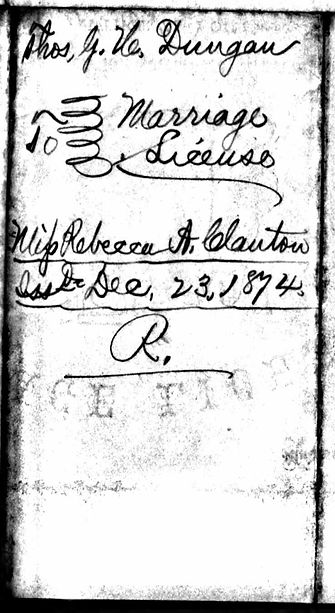 Thos, G. H. Dungan
To
Marriage
License
Miss Rebecca A. Clanton
Issd Dec, 23, 1874.
R.